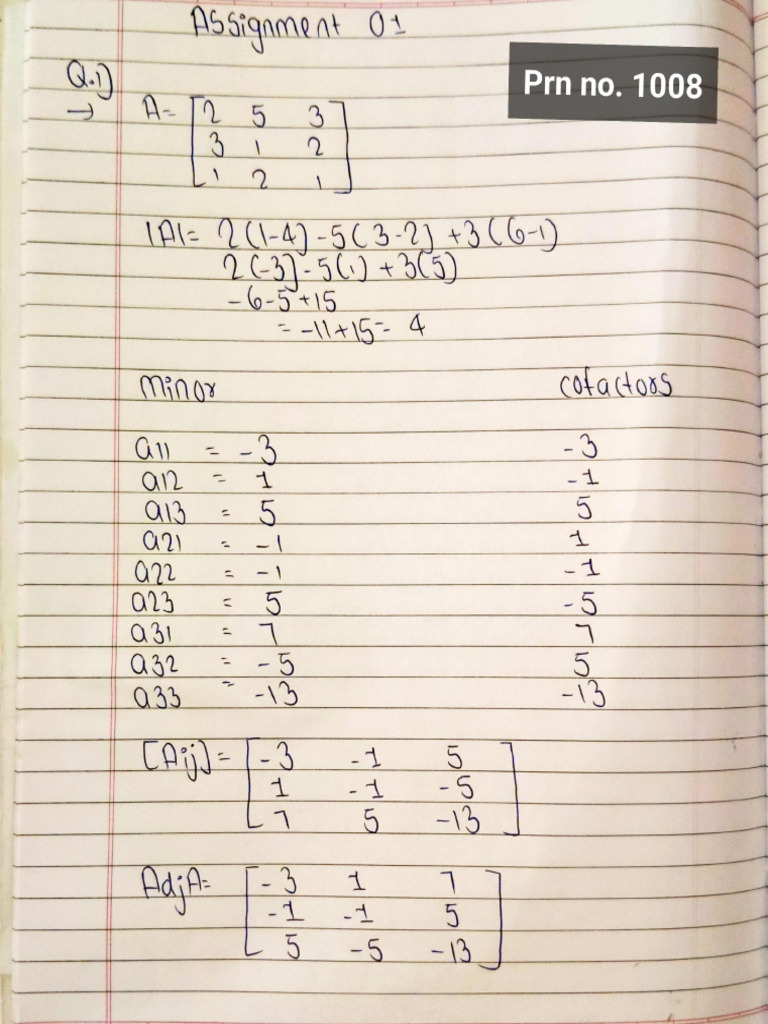 Assignment 01
Prn no. 1008
Q.1)
→ A= [2 5 3
3 1 2
1 2 1]
|A|= 2(1-4)-5(3-2)+3(6-1)
2(-3)-5(1)+3(5)
-6-5+15
= -11+15= 4
Minor cofactors
a11 = -3 -3
a12 = 1 -1
a13 = 5 5
a21 = -1 1
a22 = -1 -1
a23 = 5 -5
a31 = 7 7
a32 = -5 5
a33 = -13 -13
[Aij]= [-3 -1 5
1 -1 -5
7 5 -13]
AdjA= [-3 1 7
-1 -1 5
5 -5 -13]